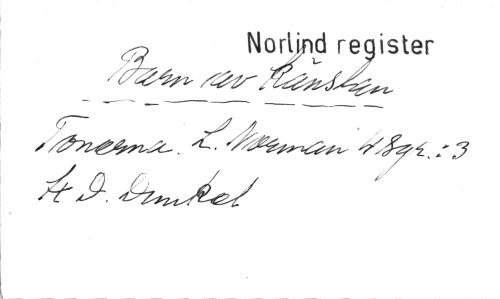 Norlind register
Barn av känslan
Tonerna. L. Norman 48gr. : 3
H D. Dunkel